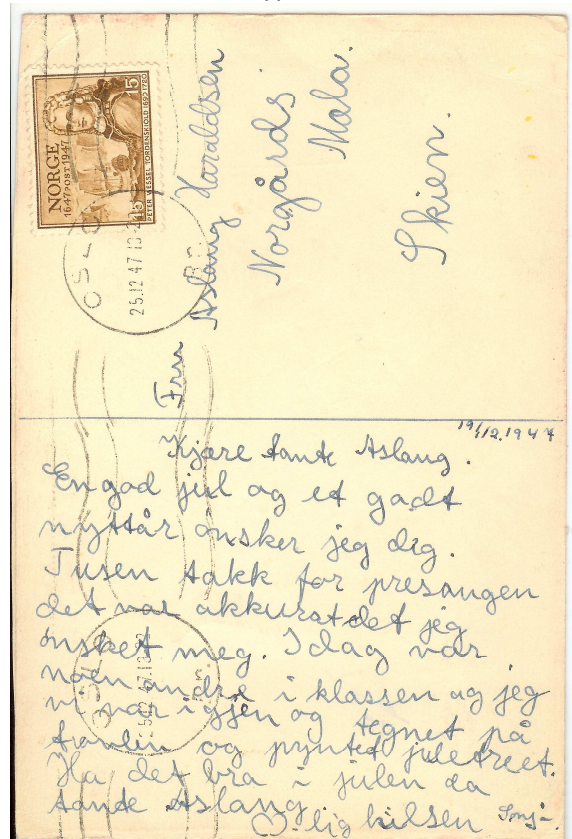 NORGE
1647 POST 1947
15
15
PETER WESSEL TORDENSKIOLD 1690 1720
OSLO
26.12.47.13
Br.
Fru
Aslaug Haraldsen
Norgårds
Mala.
Skien.
19/12.1947
Kjære tante Aslaug.
En god jul og et godt
nyttår ønsker jeg dig.
Tusen takk for presangen
det var akkurat det jeg
ønsket meg. I dag var
noen andre i klassen og jeg
vi var igjen og tegnet på
tavlen og pyntet juletreet.
Ha det bra i julen da
tante Aslaug
♡ lig hilsen Sonja